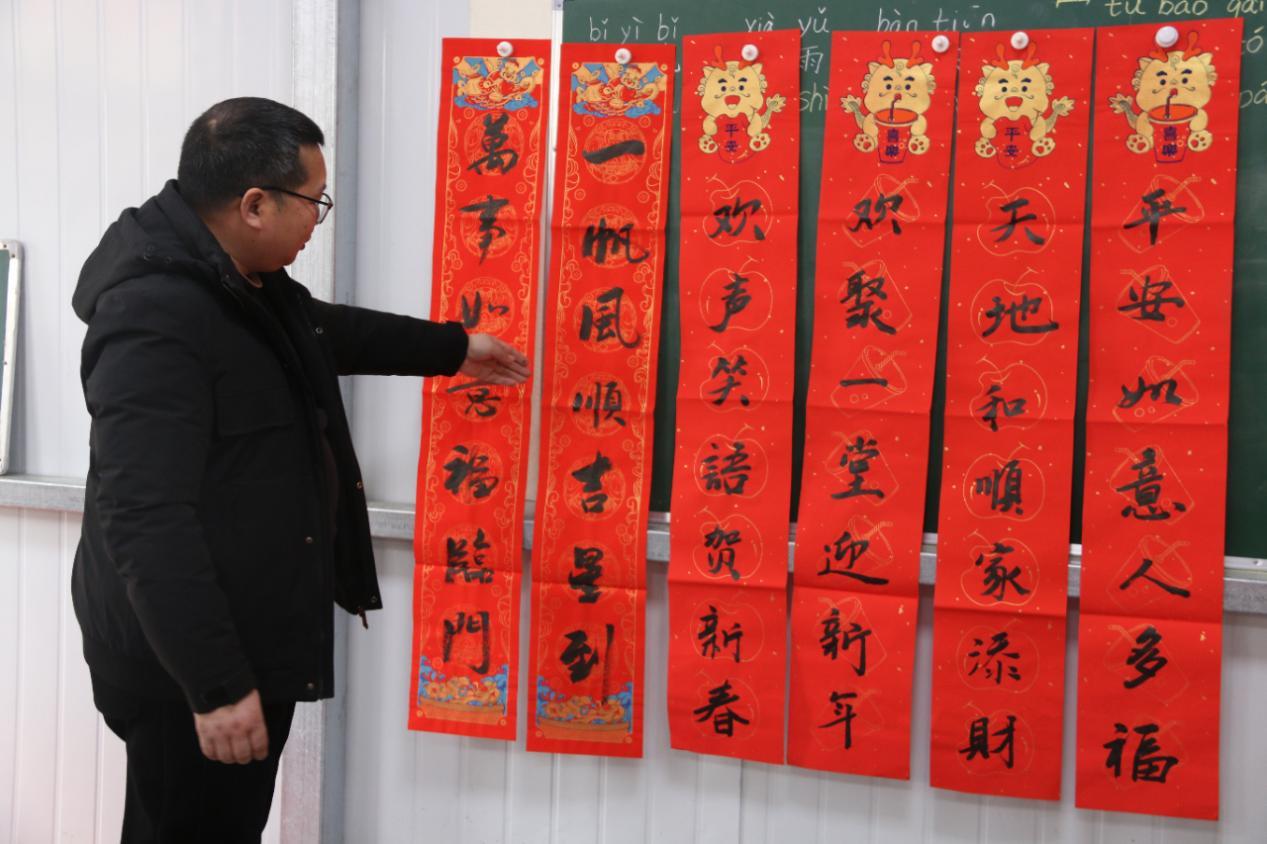 bǐ yì bǐ xià yǔ bàn tiān
雨
喜樂
平安如意人多福
平安
天地和順家添財
喜樂
欢聚一堂迎新年
平安
欢声笑語贺新春
一帆風順吉星到
萬事如意福臨門